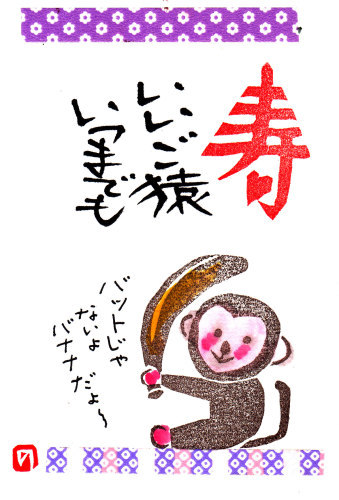 寿
いいご猿
いつまでも
バットじゃ
ないよ
バナナだよ〜